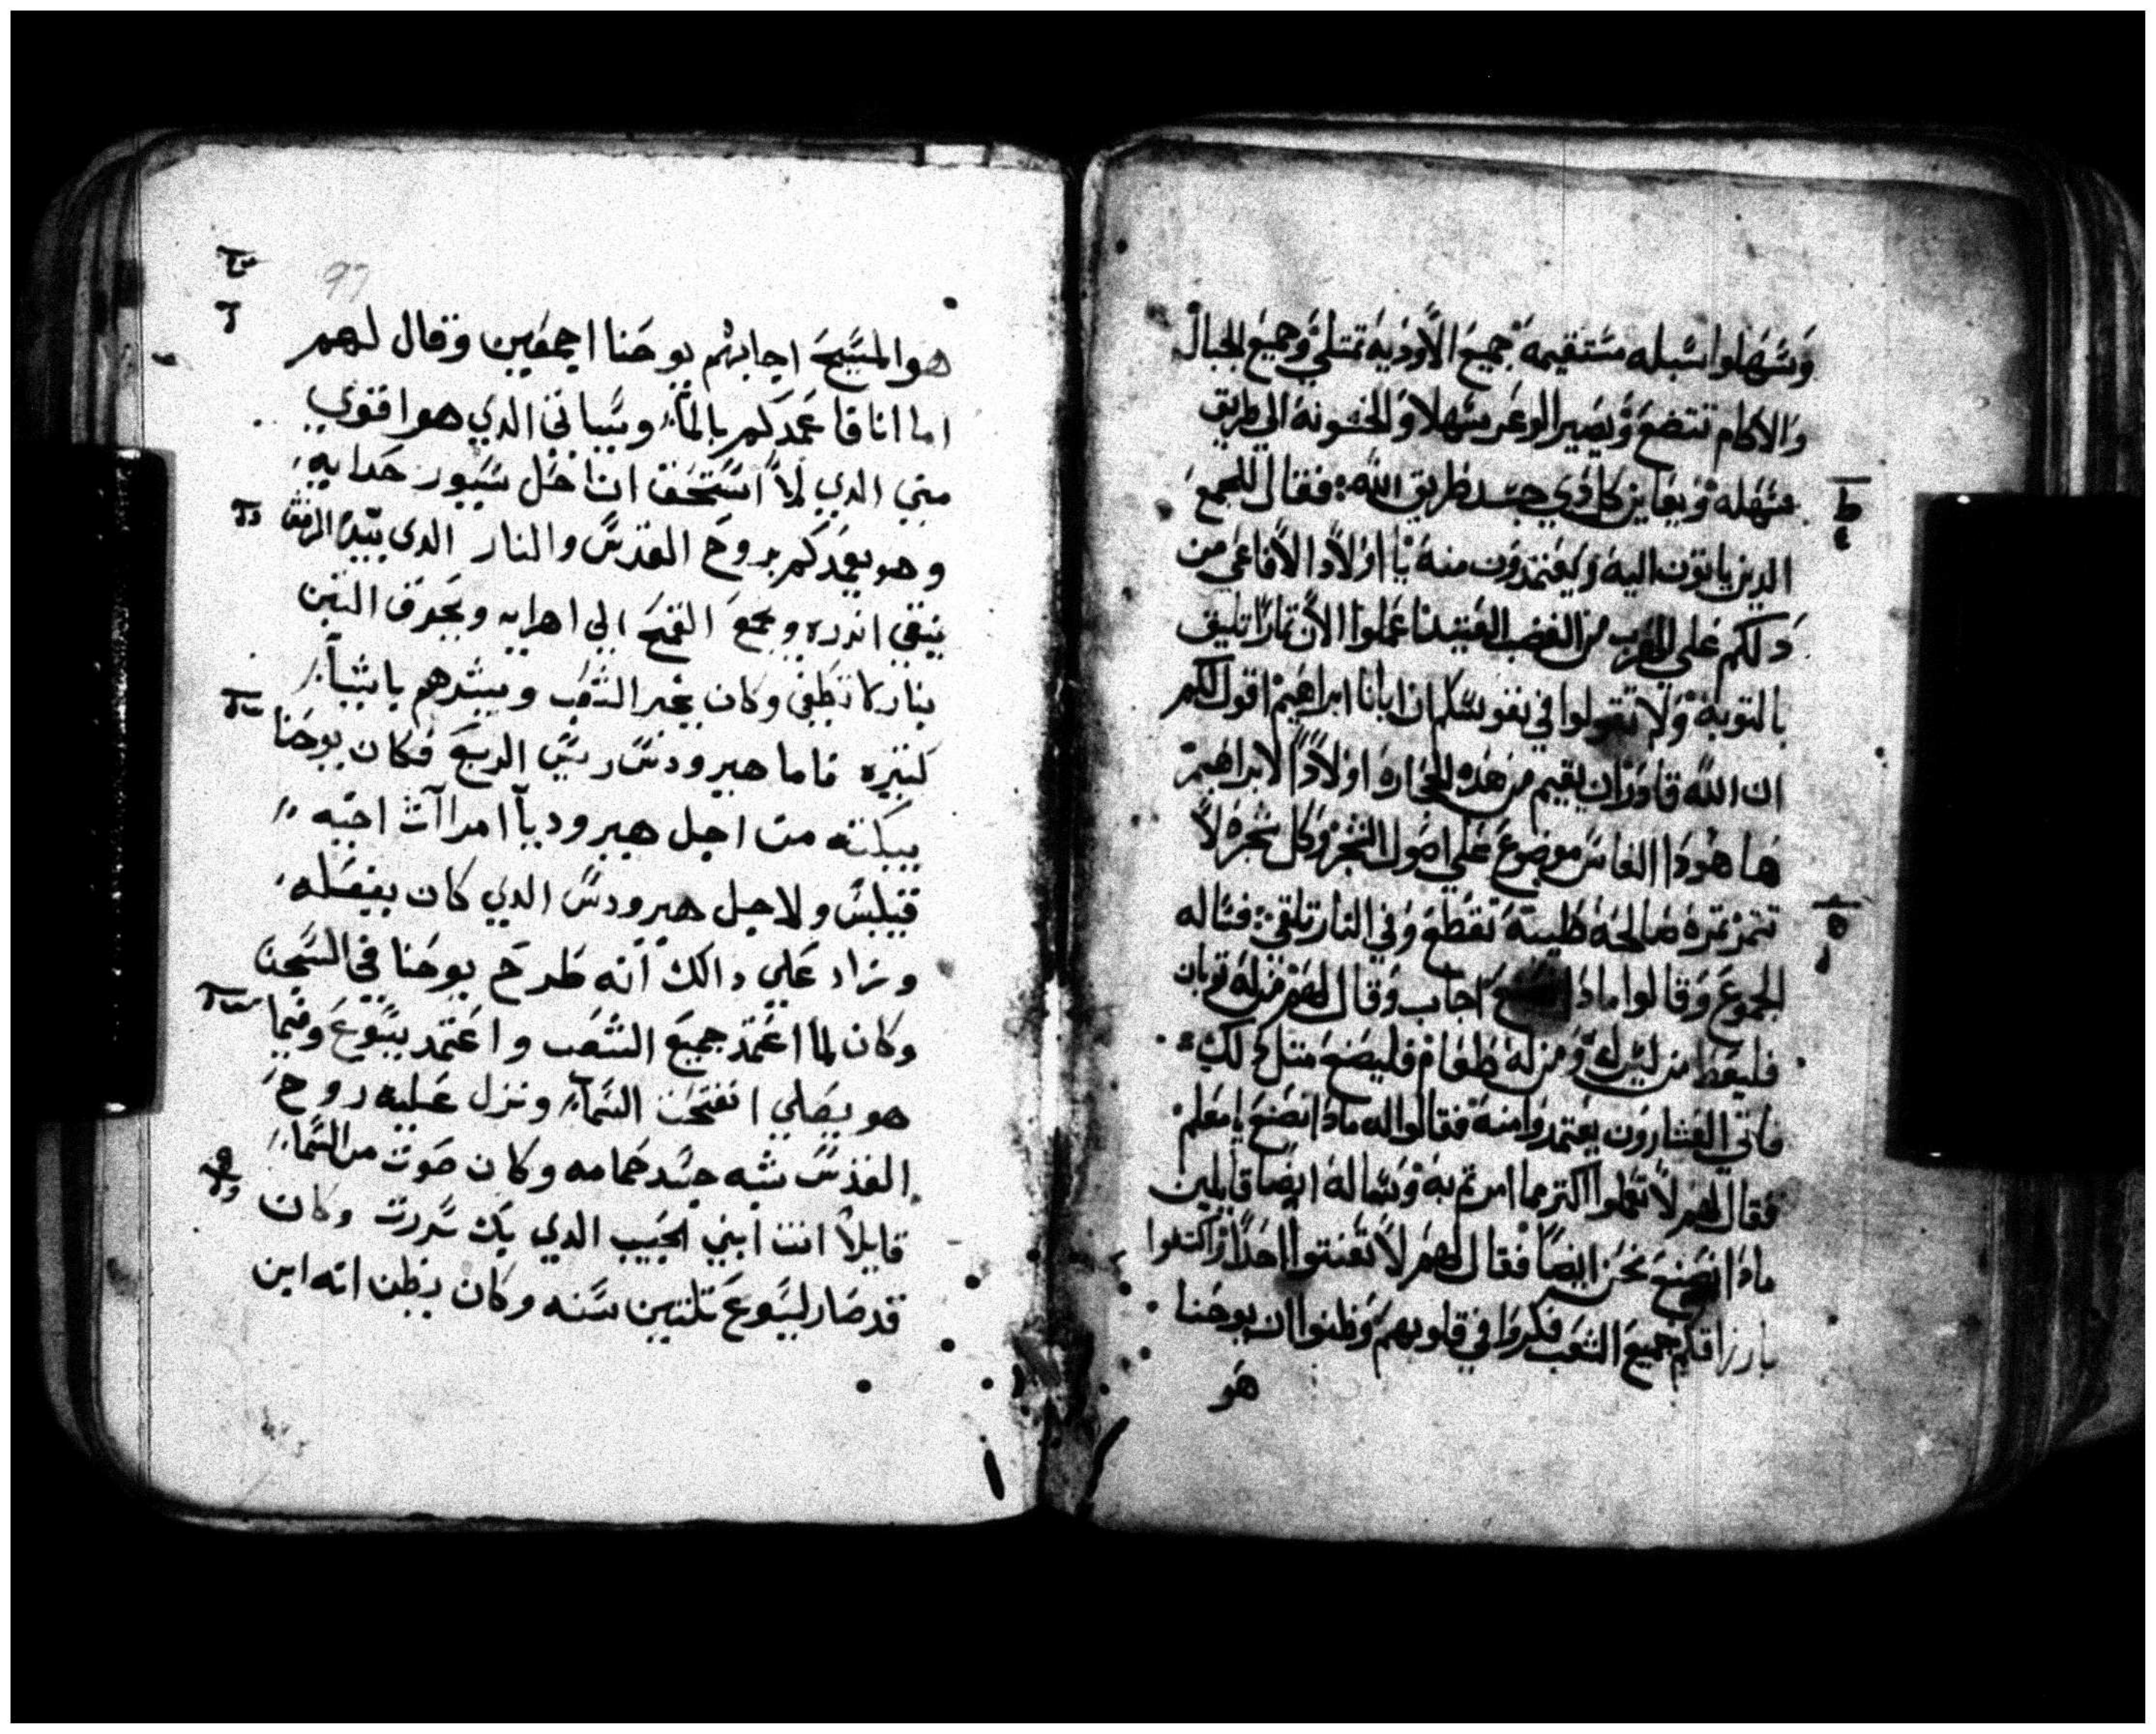 وسهلوا سبله مستقيمه جميع الاوديه تمتلي وجميع الجبال
والاكام تتضع ويصير الوعر سهلا والخشونه الي طريق
سهله ويعاين كل ذي جسد طريق الله : فقال للجمع
الدين ياتون اليه ويعتمدون منه يا اولاد الافاعي من
دلكم علي الهرب من الغضب اعملوا الان تمارا تليق
بالتوبه ولا تقولوا في نفوسكم ان ابانا ابراهيم اقول لكم
ان الله قادر ان يقيم من هده الحجاره اولادا لابراهيم
ها هودا الفاس موضوع علي اصول الشجر وكل شجره لا
تتمر تمره صالحه طيبة تقطع وفي النار تلقي : فساله
الجموع وقالوا مادا اجاب وقال لهم من له توبان
فليعط من ليس له ومن له طعام فليصنع متل دلك
فاتي العشارون يعتمدوا منه فقالوا له مادا نصنع يا معلم
فقال لهم لا تعملوا اكتر مما امرتم به وساله ايضا قايلين
مادا نصنع نحن ايضا فقال لهم لا تعنتوا احدا واكتفوا
بارزاقكم جميع الشعب فكروا في قلوبهم وظنوا ان يوحنا
هو
97
هو المسيح اجابهم يوحنا اجمعين وقال لهم
اما انا فاعمدكم بالماء وسياتي الدي هو اقوي
مني الدي لا استحق ان احل سيور حدايه
وهو يعمدكم بروح القدس والنار الدي بيده الرفش
ينقي اندره ويجمع القمح الي اهرايه ويحرق التبن
بنار لا تطفي وكان يخبر الشعب ويبشرهم باشياء
كتيره فاما هيرودس ريس الربع فكان يوحنا
يبكته من اجل هيروديا امراآت اخيه
فيلبس ولاجل هيرودس الدي كان يفعله
وزاد علي دالك انه طرح يوحنا في السجن
وكان لما اعتمد جميع الشعب واعتمد يسوع وفيما
هو يصلي انفتحت السماء ونزل عليه روح
القدس شبه جسد حمامه وكان صوت من السماء
قايلا انت ابني الحبيب الدي بك سررت وكان
قد صار ليسوع تلتين سنه وكان يظن انه ابن